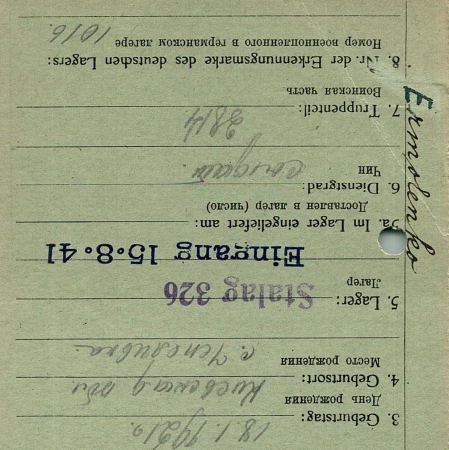 Ermolenko
3. Geburtstag: 18.1.1921г.
День рождения
4. Geburtsort: Киевская обл
Место рождения с.
5. Lager: Stalag 326
Лагер
Eingang 15.8.41
5a. Im Lager eingeliefert am:
Доставлен в лагер (число)
6. Dienstgrad: солдат
Чин
7. Truppenteil:
Воинская часть
8. Nr. der Erkennungsmarke des deutschen Lagers:
Номер военнопленного в германском лагере 1016.